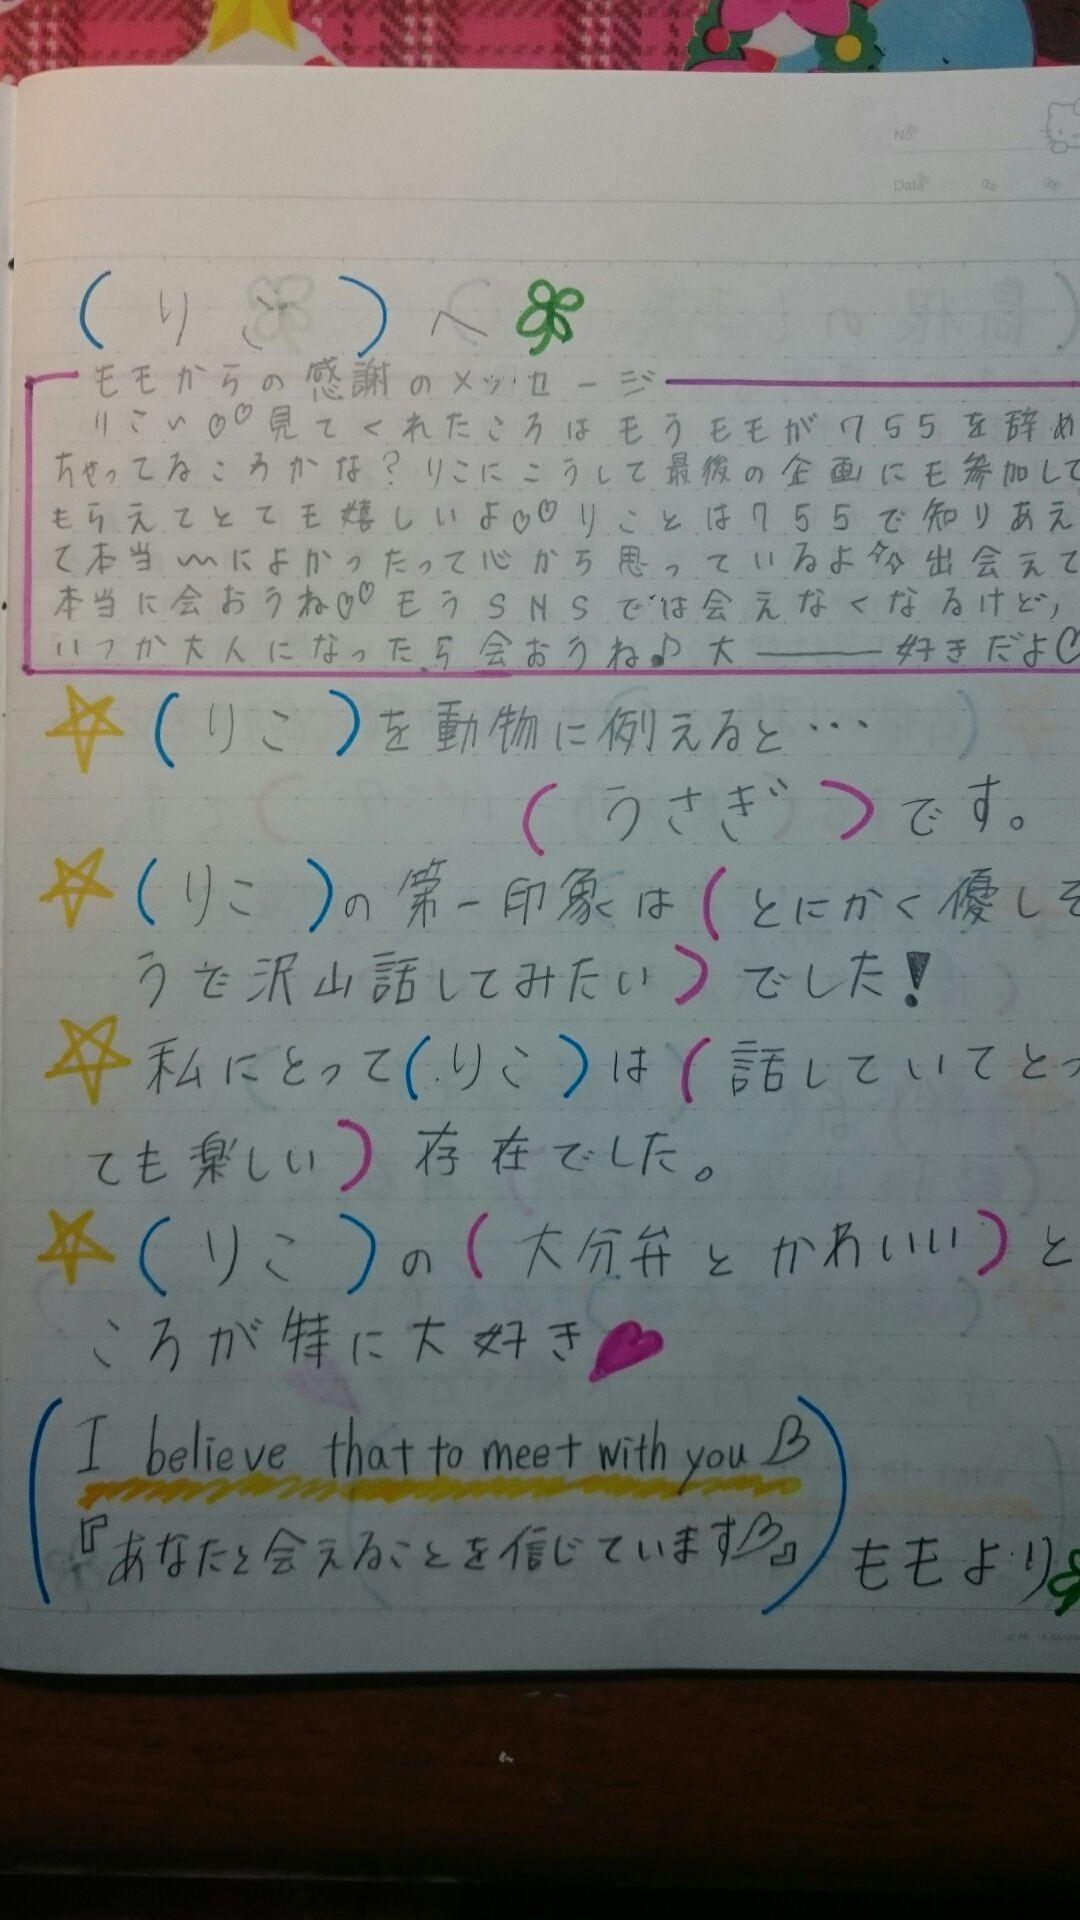 No.
Date
(りこ)へ
モモからの感謝のメッセージ
りこい♡♡見てくれたころはもうモモが755を辞め
ちゃってるころかな?りこにこうして最後の企画にも参加して
もらえてとても嬉しいよ♡♡りことは755で知りあえ
て本当〰によかったって心から思っているよ☆☆出会えて
本当に会おうね♡♡もうSNSでは会えなくなるけど,
いつか大人になったら会おうね♪大———好きだよ♡
☆(りこ)を動物に例えると…
(うさぎ)です。
☆(りこ)の第一印象は(とにかく優しそ
うで沢山話してみたい)でした!
☆私にとって(りこ)は(話していてとっ
ても楽しい)存在でした。
☆(りこ)の(大分弁とかわいい)と
ころが特に大好き♥
(I believe that to meet with you♡
『あなたと会えることを信じています♡』)ももより